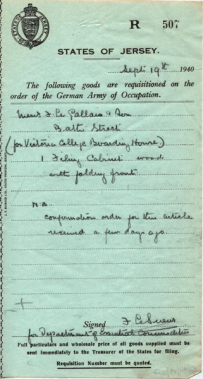 R 507
STATES OF JERSEY.
Sept 19th 1940
The following goods are requisitioned on the
order of the German Army of Occupation.
Messrs F. Le Pallais & Son
Bath Street
(for Victoria College Boarding House)
1 Filing Cabinet wood
with folding front.
N.B.
Confirmation order for this article
received a few days ago.
Signed
for Department of Essential Commodities
Full particulars and wholesale price of all goods supplied must be
sent immediately to the Treasurer of the States for filing.
Requisition Number must be quoted.